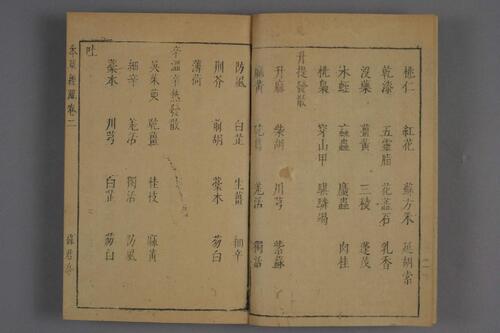 桃仁 紅花 蘇方木 延胡索
乾漆 五靈脂 花蕊石 乳香
沒藥 薑黃 三稜 蓬莪
水蛭 蝱蟲 䗪蟲 肉桂
桃梟 穿山甲 騏驎竭
升提發散
升麻 柴胡 川芎 紫蘇
麻黃 葛 羗活 獨活
防風 白芷 生薑 細辛
荆芥 前胡 藁本 葱白
薄荷
辛溫辛熱發散
吳茱萸 乾薑 桂枝 麻黃
細辛 羗活 獨活 防風
藁本 川芎 白芷 葱白
吐
卷二